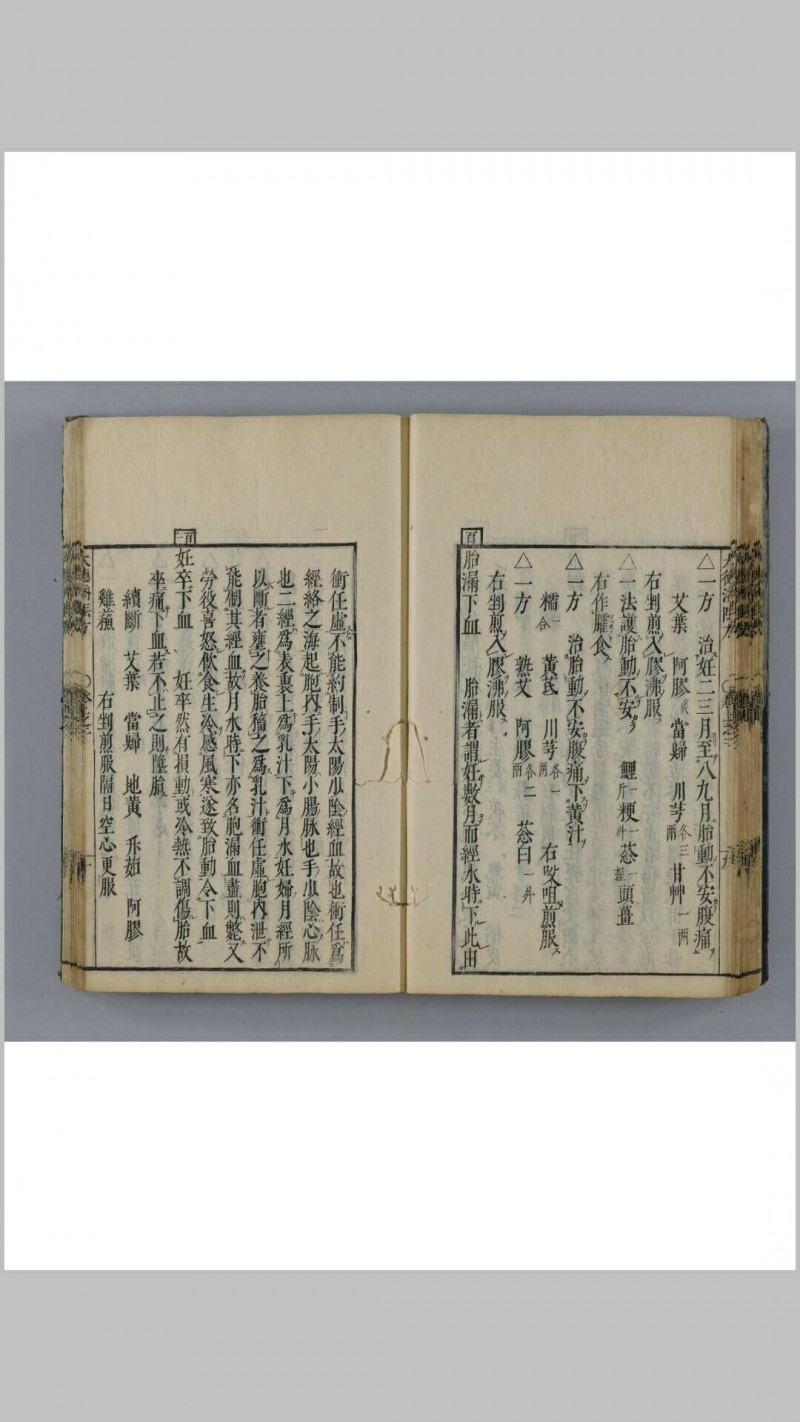 △一方　治妊二三月至八九月胎動不安腹痛
艾葉　阿膠　當歸　川芎各三兩　甘艸一兩
右剉煎入膠沸服
△一法護胎動不安　鯉一斤　粳一升　葱一握　頭薑
右作臛食
△一方　治胎動不安腹痛下黃汁
糯一合　黃芪　川芎各一兩　右㕮咀煎服
△一方　熟艾　阿膠各二兩　葱白一升
右剉煎入膠沸服
百
胎漏下血　胎漏者謂妊數月而經水時下此由
衝任虛不能約制手太陽少陰經血故也衝任爲
經絡之海起胞內手太陽小腸脉也手少陰心脉
也二經爲表裏上爲乳汁下爲月水妊婦月經所
以斷者壅之養胎穡之爲乳汁衝任虛胞內泄不
能制其經血故月水時下亦名胞漏血盡則斃又
勞役喜怒飲食生冷感風寒遂致胎動令下血
百一
妊卒下血　妊卒然有損動或冷熱不調傷胎故
卒痛下血若不止之則墮胎
續斷　艾葉　當歸　地黃　竹茹　阿膠
雞蘓　右剉煎服隔日空心更服